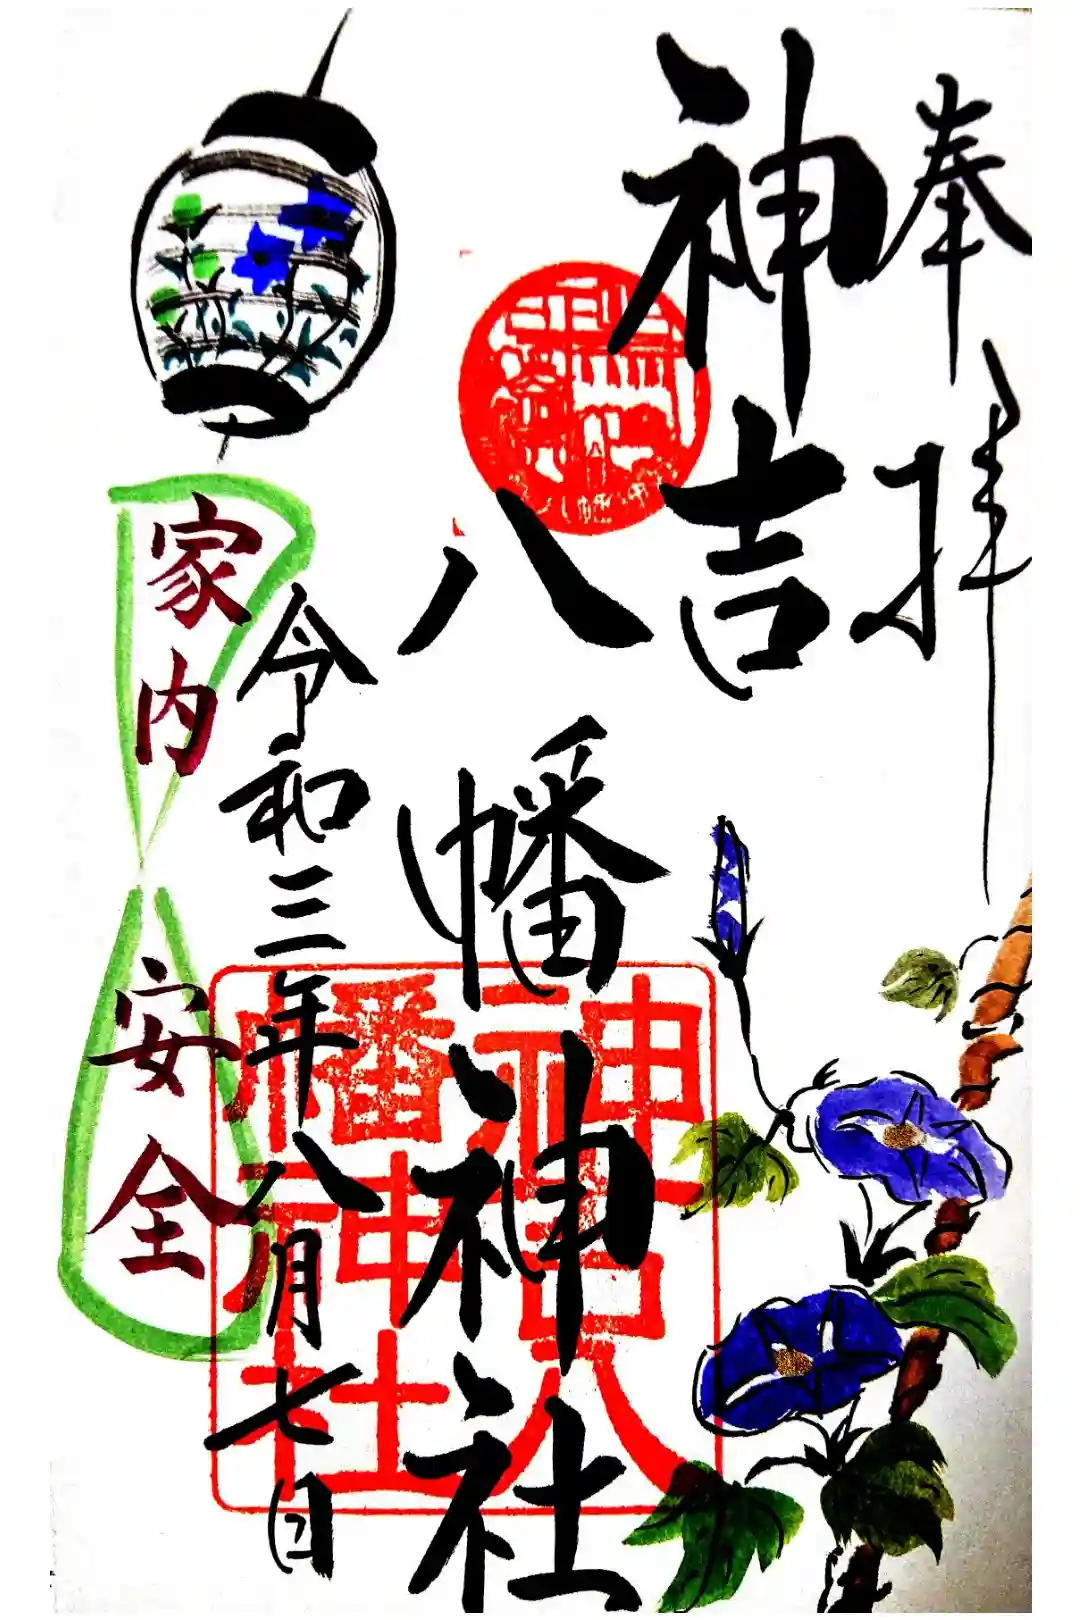 奉拝
神吉
八幡神社
令和三年八月七日
家内安全
神吉八
幡神社